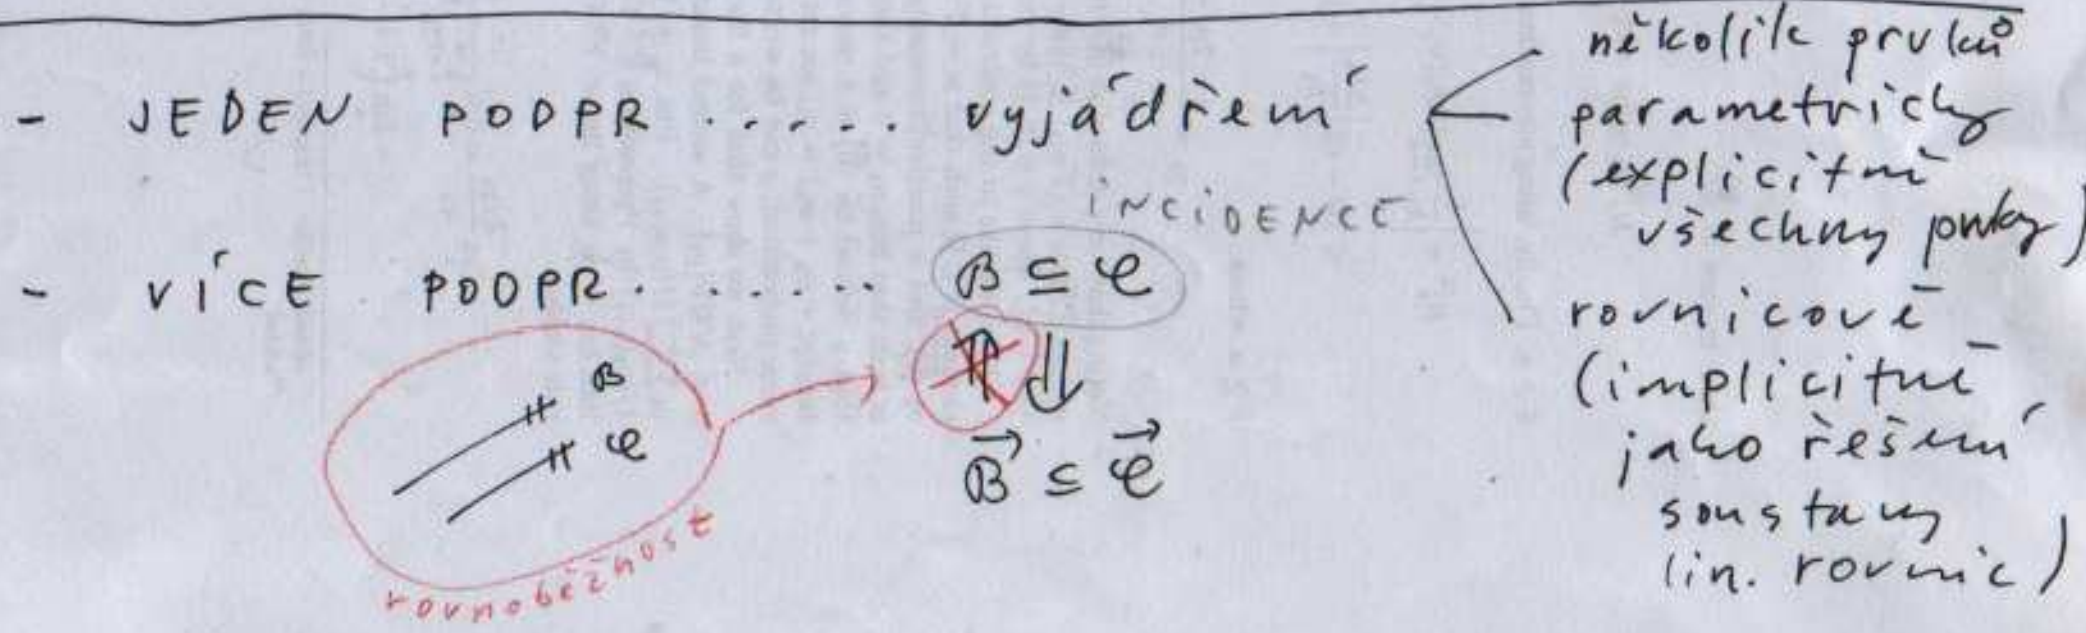 - JEDEN PODPR ..... vyjádření
několik prvků
parametricky
(explicitně
všechny prvky)
rovnicově
(implicitně
jako řešení
soustavy
lin. rovnic)
INCIDENCE
- VÍCE PODPR. ..... B ⊆ C
⇑ ⇓
B⃗ ⊆ C⃗
B
C
rovnoběžnost